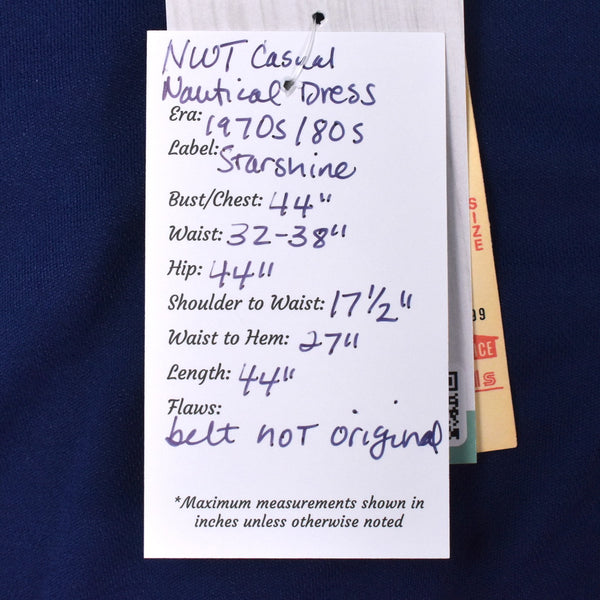 NWT Casual
Nautical Dress
Era: 1970s/80s
Label: Starshine
Bust/Chest: 44"
Waist: 32-38"
Hip: 44"
Shoulder to Waist: 17 1/2"
Waist to Hem: 27"
Length: 44"
Flaws:
belt not original
*Maximum measurements shown in
inches unless otherwise noted
SIZE
99
ICE
ls